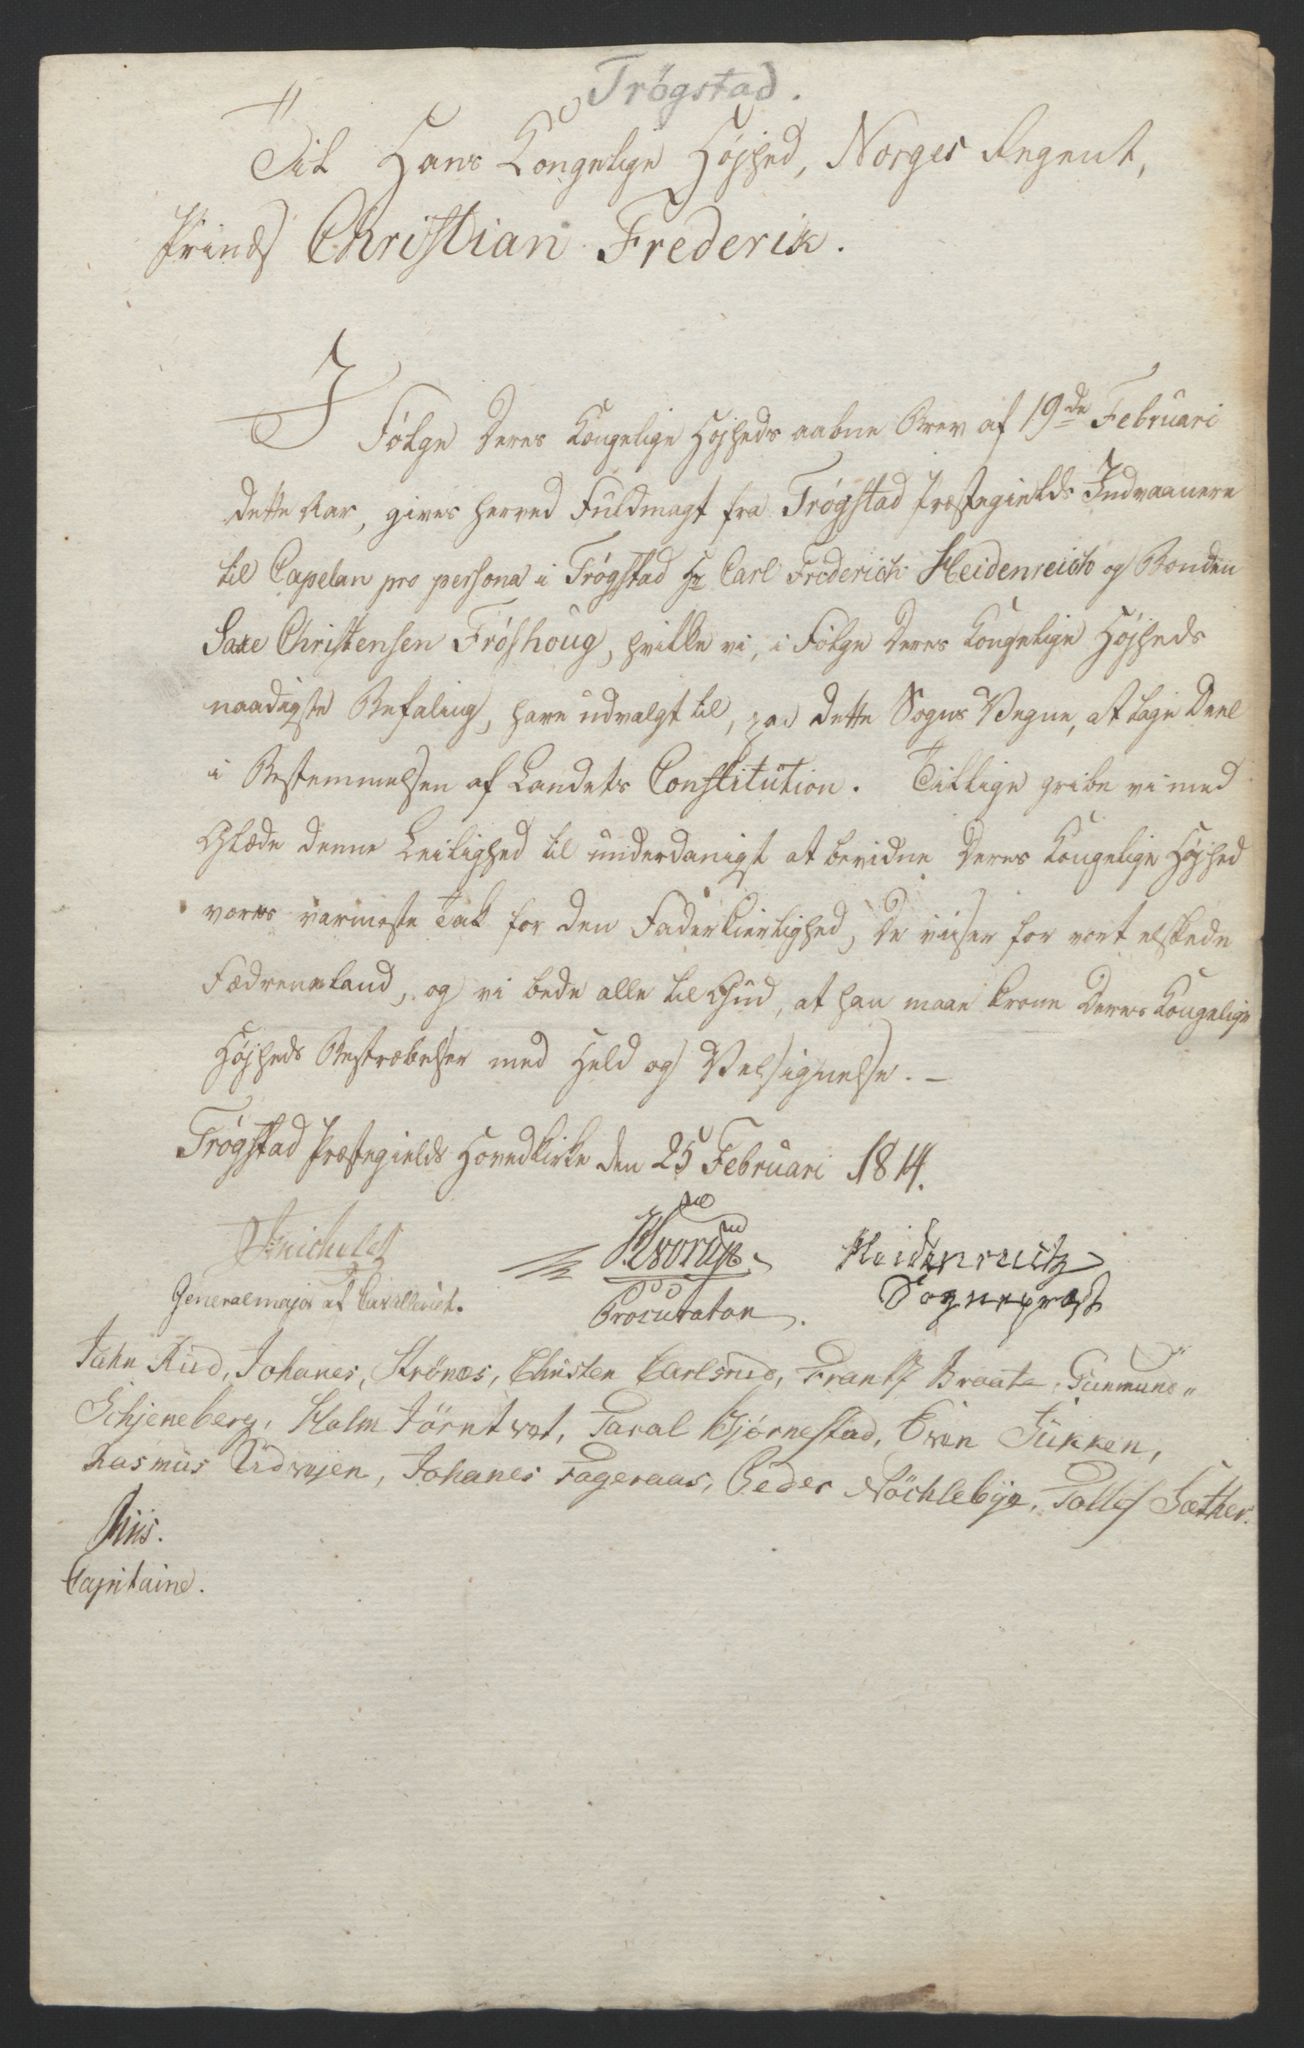 Trøgstad.
Til Hans Kongelige Højhed, Norges Regent,
Prinds Christian Frederik.
I Følge Deres Kongelige Højheds aabne Brev af 19de Februari
dette Aar, gives herved Fuldmagt fra Trøgstad Præstegields Indvaanere
til Capelan pro persona i Trøgstad Hr Carl Frederich Heidenreich og Bonden
Saxe Christensen Frøshoug, hvilke vi, i Følge Deres Kongelige Højheds
naadigste Befaling, have udvalgt til, paa dette Sogns Vegne, at tage Deel
i Bestemmelsen af Landets Constitution. Tillige gribe vi med
Glæde denne Leilighed til underdanigst at bevidne Deres Kongelige Højhed
vores varmeste Tak for den Faderkierlighed, De viiser for vort elskede
Fædreneland, og vi bede alle til Gud, at han maae krone Deres Kongelige
Højheds Bestræbelser med Held og Velsignelse. –
Trøgstad Præstegields Hovedkirke den 25 Februari 1814.
Hvorup Heidenreich
Generalmajor af Cavalleriet. Procurator. Sognepræst
Jahn Rud, Johanes, Strønes, Christen Carlsrud, Frantz Braate, Gunmund
Schjeneberg, Halm Tørntvet, Taral Bjørnestad, Even Tukken,
Rasmus Udvejen, Johanes Fageraas, Peder Nöchlebÿe, Tollef Sæther.
Riis.
Capitaine.